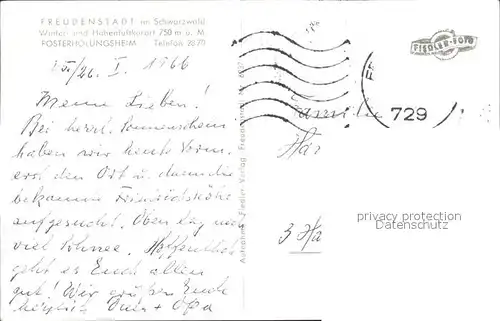 FREUDENSTADT im Schwarzwald
Winter- und Höhenluftkurort 750 m ü. M.
POSTERHOLUNGSHEIM Telefon 2070
FIEDLER-FOTO
15./26. I. 1966
Meine Lieben!
Bei herrl. Sonnenschein
haben wir heute Vorm.
erst den Ort u. dann die
bekannte
aufgesucht. Oben lag noch
viel Schnee. Hoffentlich
geht es Euch allen
gut! Wir grüßen Euch
herzlich Oma + Opa
Aufnahme Fiedler Verlag Freudenstadt
729
Familie
Har
3 Ha
privacy protection
Datenschutz